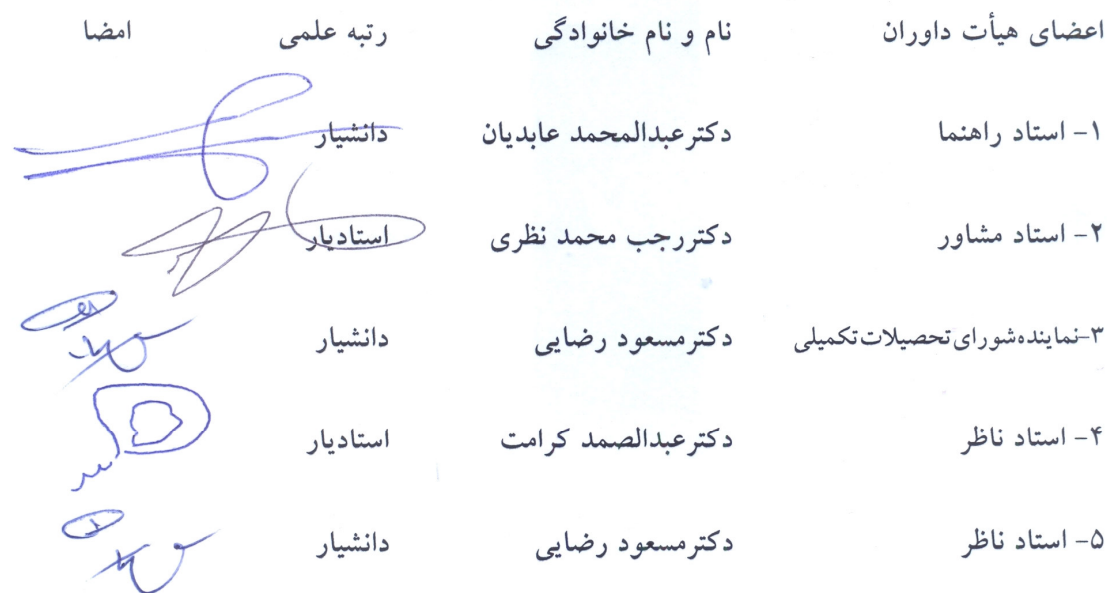 اعضای هیأت داوران نام و نام خانوادگی رتبه علمی امضا
۱- استاد راهنما دکترعبدالمحمد عابدیان دانشیار
۲- استاد مشاور دکتررجب محمد نظری استادیار
۳-نماینده‌شورای‌تحصیلات‌تکمیلی دکترمسعود رضایی دانشیار
۴- استاد ناظر دکترعبدالصمد کرامت استادیار
۵- استاد ناظر دکترمسعود رضایی دانشیار